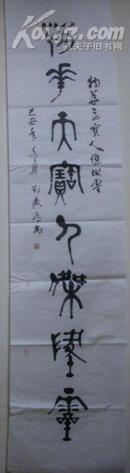 物華天寶人傑地靈
物華天寶人傑地靈
己丑年
孔夫子旧书网